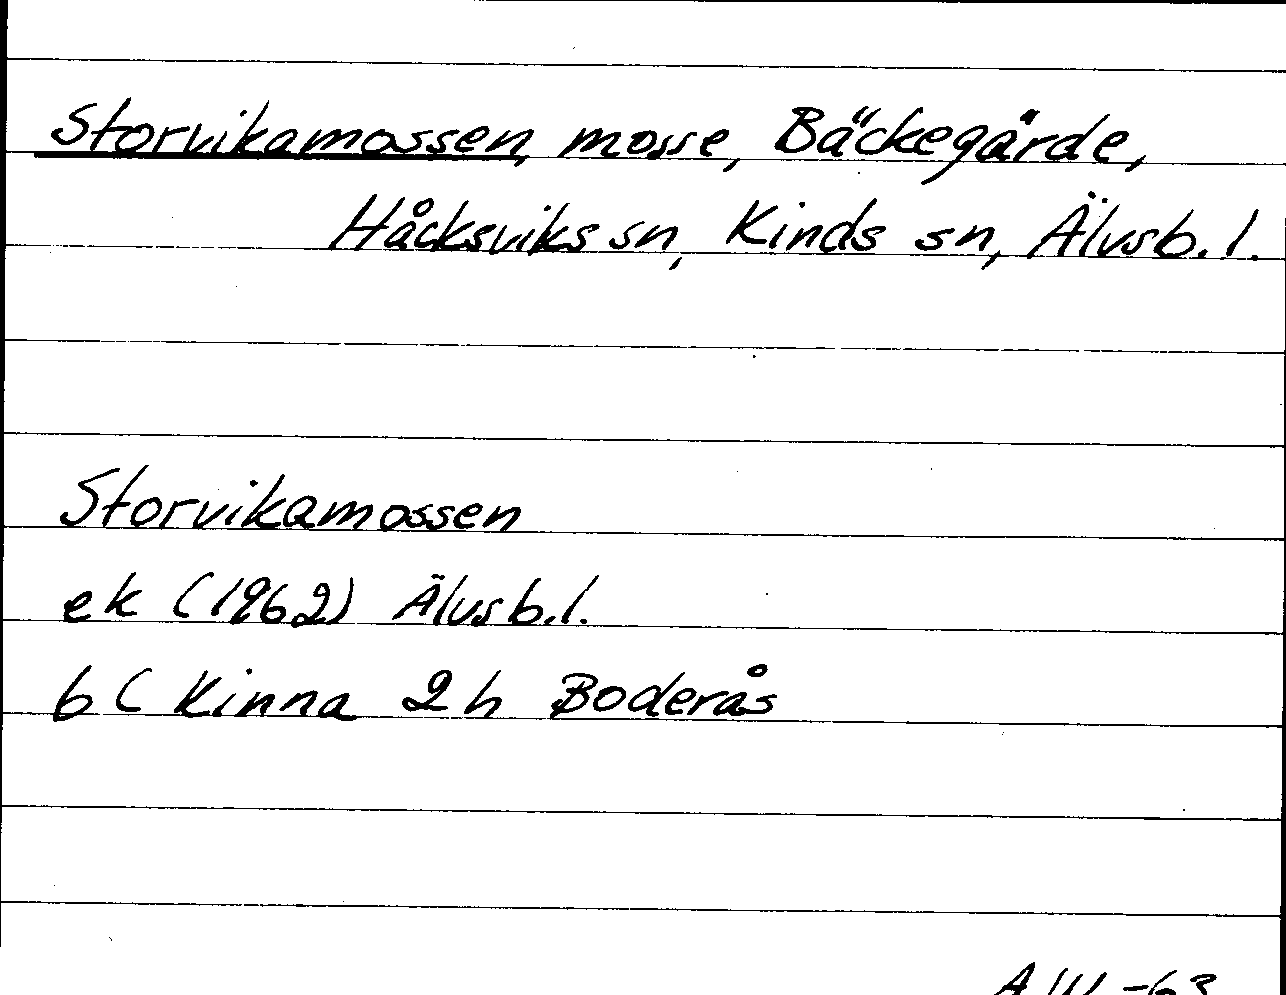 Storvikamossen, mosse, Bäckegärde,
Håcksviks sn, Kinds sn, Älvsb. l.
Storvikamossen
ek (1962) Älvsb.l.
6C Kinna 2h Boderås